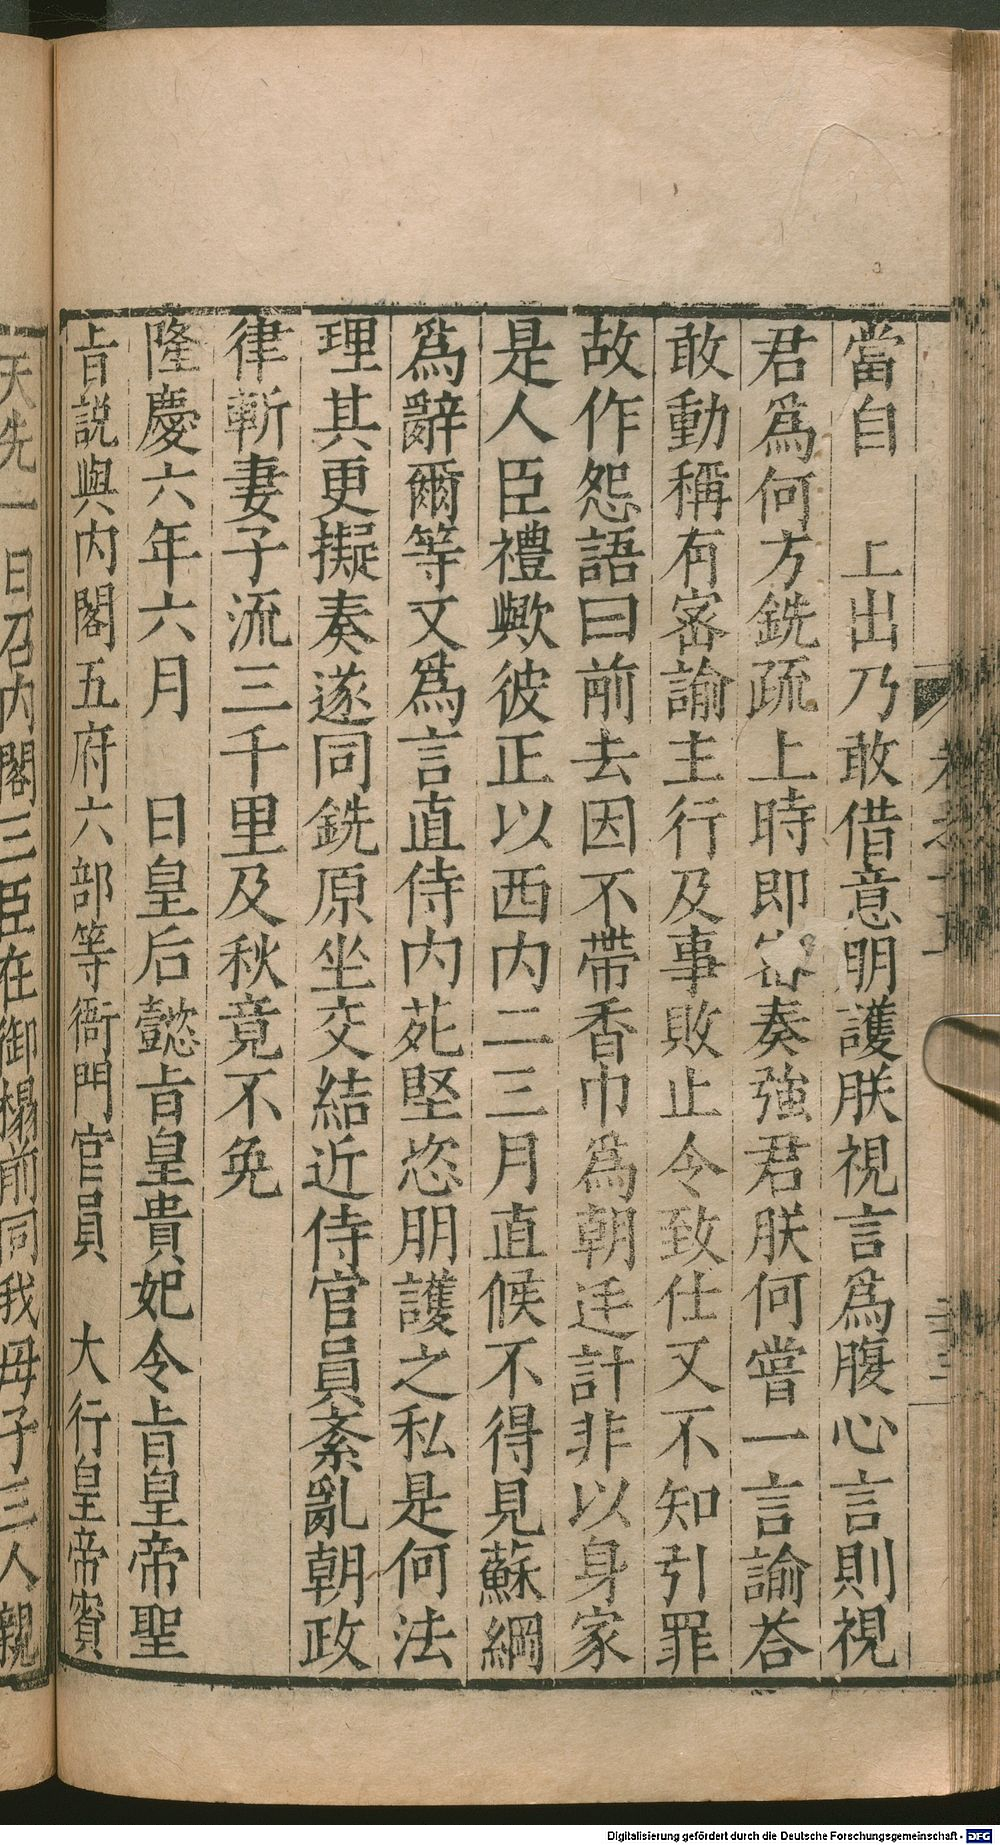 當自　上出乃敢借意明護朕視言爲腹心言則視
君爲何方銑疏上時即密奏強君朕何嘗一言諭荅
敢動稱有密諭主行及事敗止令致仕又不知引罪
故作怨語曰前去因不帶香巾爲朝廷計非以身家
是人臣禮歟彼正以西内二三月直候不得見蘇綱
爲辭爾等文爲言直侍内苑堅恣朋護之私是何法
理其更擬奏遂同銑原坐交結近侍官員紊亂朝政
律斬妻子流三千里及秋竟不免
隆慶六年六月　日皇后懿旨皇貴妃令旨皇帝聖
旨說與内閣五府六部等衙門官員　大行皇帝賓
天先一日召内閣三臣在御榻前同我母子三人親
Digitalisierung gefördert durch die Deutsche Forschungsgemeinschaft - DFG